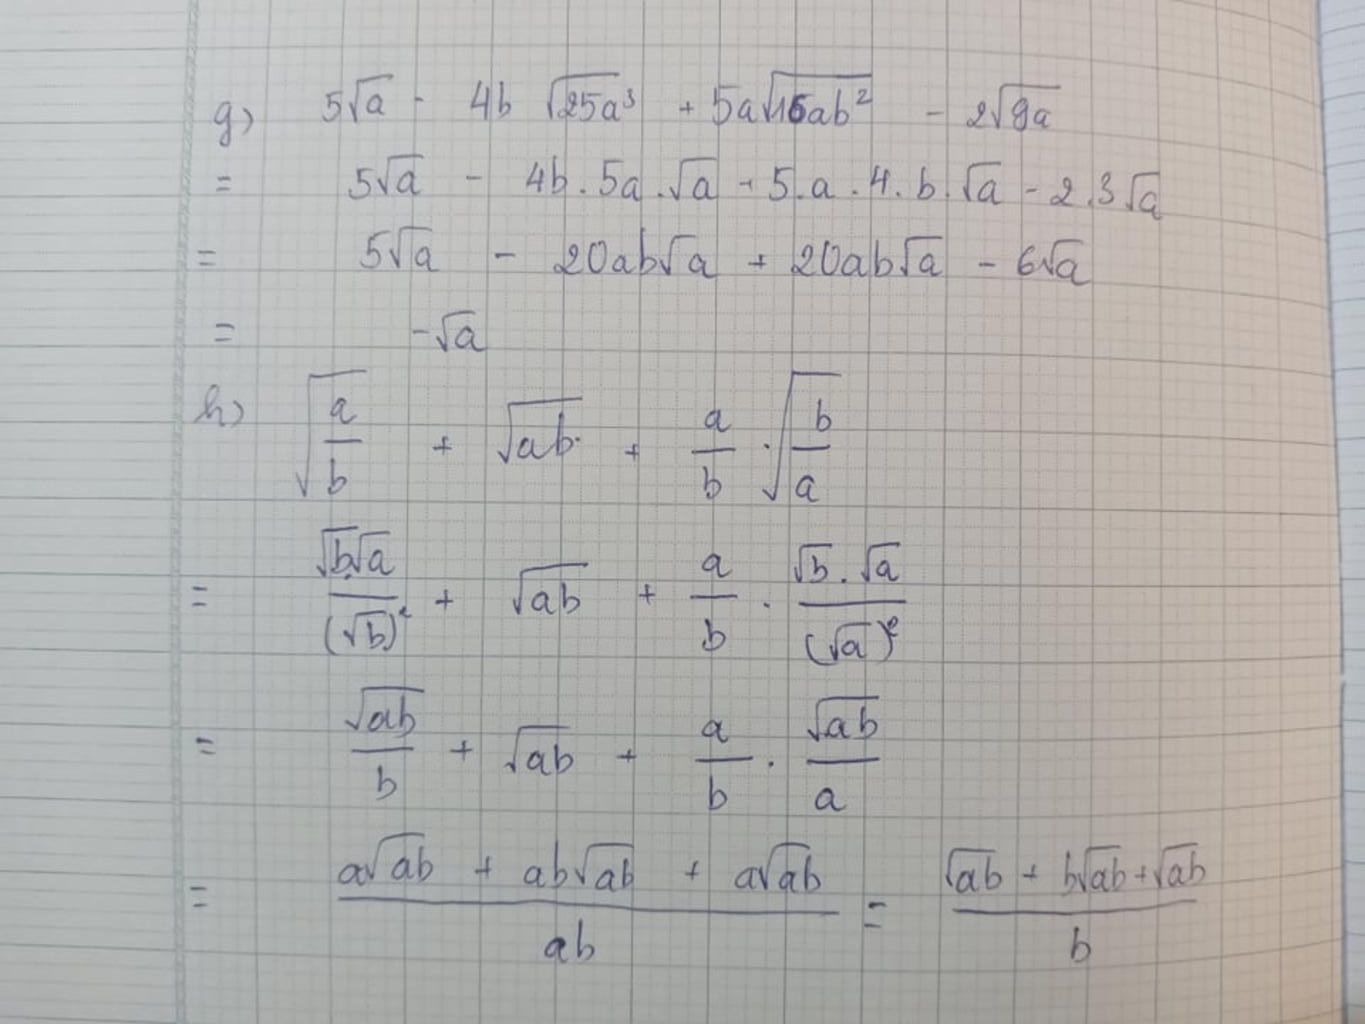 g) 5√a - 4b √25a³ + 5a√16ab² - 2√9a
= 5√a - 4b . 5a . √a + 5 . a . 4 . b . √a - 2 . 3√a
= 5√a - 20ab√a + 20ab√a - 6√a
= -√a
h) √(a/b) + √ab + a/b . √(b/a)
= √b.√a/(√b)² + √ab + a/b . √b . √a/(√a)²
= √ab/b + √ab + a/b . √ab/a
= (a√ab + ab√ab + a√ab)/ab = (√ab + b√ab + √ab)/b